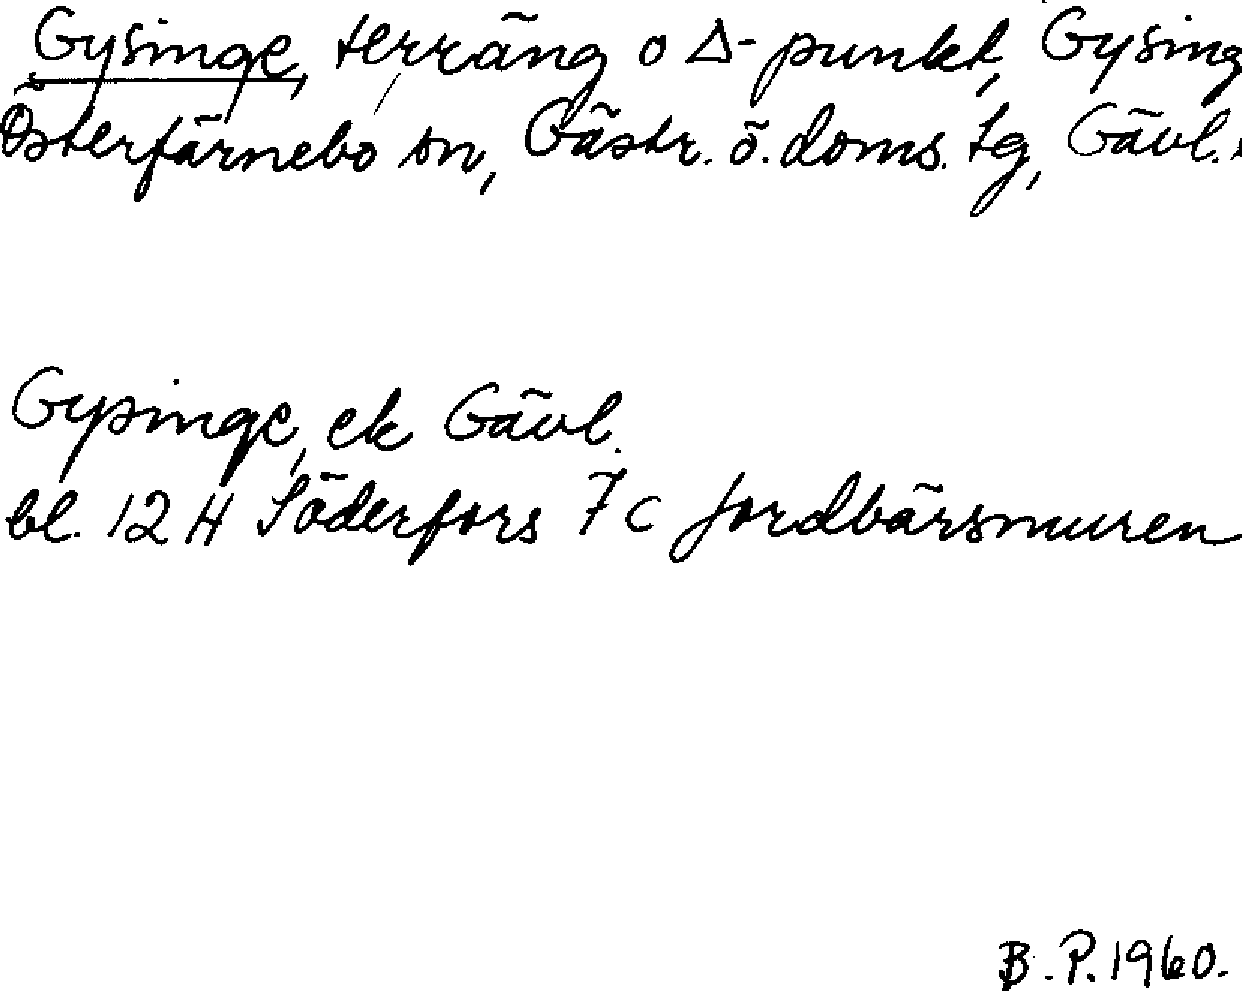 Gysinge, terräng o Δ-punkt, Gysing
Österfärnebo sn, Gästr. ö. doms. tg, Gävl.
Gysinge, ek Gävl.
bl. 12 H Söderfors 7 c Jordbärsmuren
B. P. 1960.